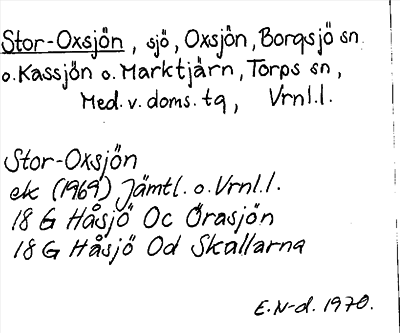 Stor-Oxsjön, sjö, Oxsjön, Borgsjö sn.
o. Kassjön o. Marktjärn, Torps sn,
Med. v. doms. tg, Vrnl.l.
Stor-Oxsjön
ek (1969) Jämtl. o. Vrnl.l.
18 G Håsjö Oc Örasjön
18 G Håsjö Od Skallarna
E.N-d. 1970.